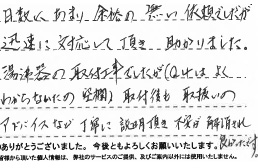 日数に あまり 余裕の 無い 依頼でしたが
迅速に 対応して 頂き 助かりました。
湯沸器の 取付工事でしたが(Q4はよく
わからないため 空欄) 取付後も 取扱いの
アドバイスなど 丁寧に 説明頂き 不安が 解消され
ありがとうございました。今後ともよろしくお願いします。良かったです
皆様から頂いた個人情報は、弊社のサービスのご提供、及びご案内以外には使用いたしません。